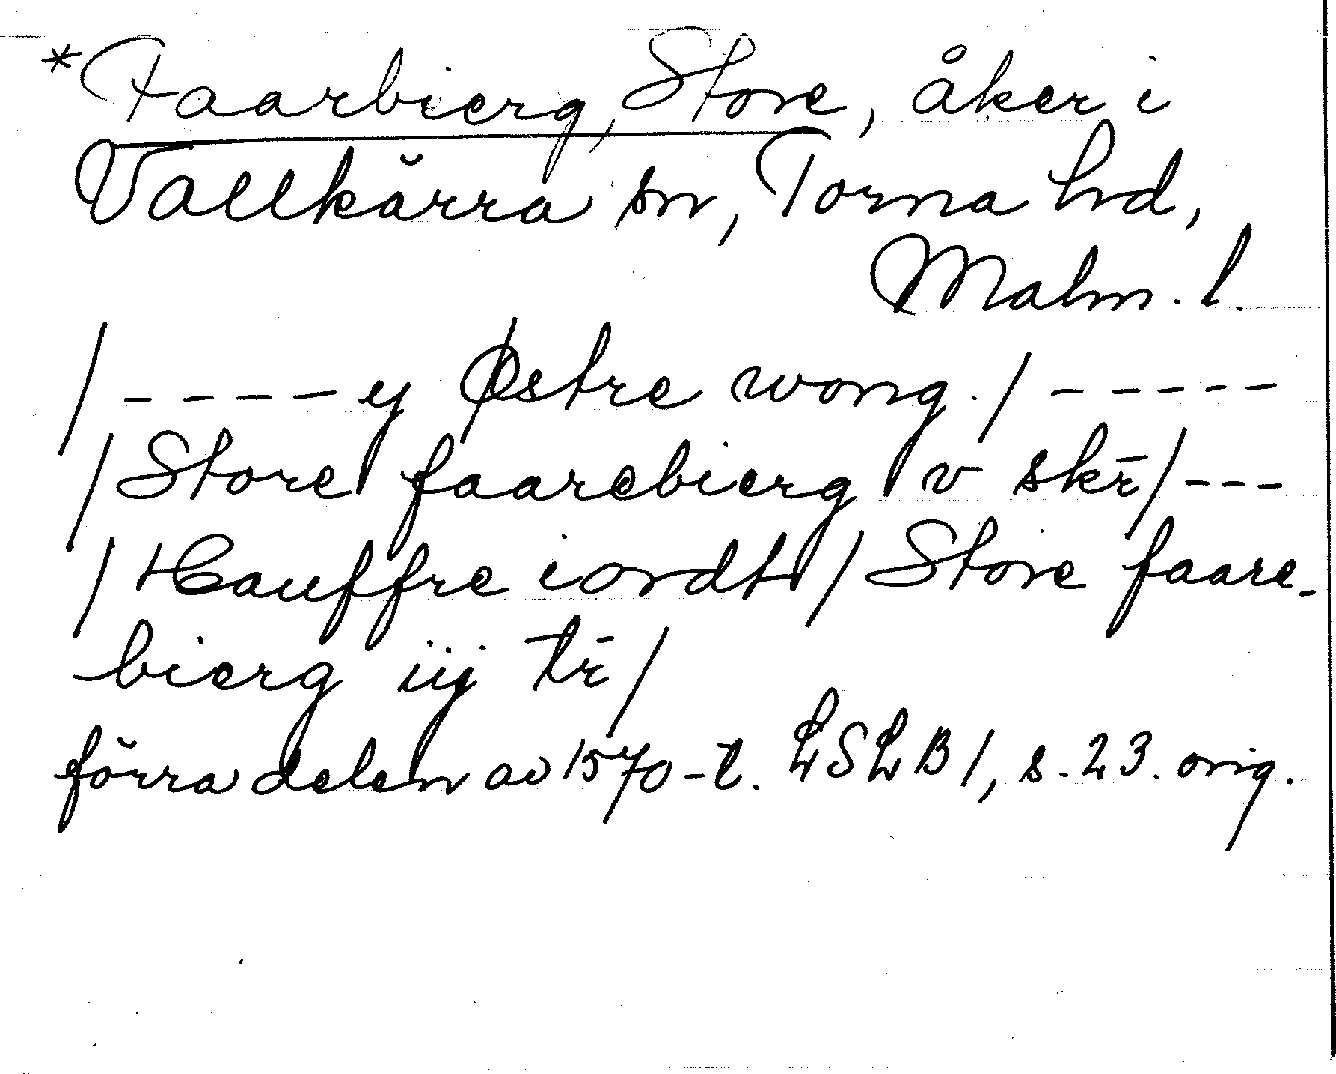 *Faarbierg, Store, åker i
Vallkärra sn, Torna hd,
Malm. l.
/ - - - - y Østre wong. / - - - - -
/ Store faarebierg v skr̄ / - - -
/ Hauffre iordt / Store faare-
bierg iij tr̄ /
förra delen av 1570-t. LSLB 1, s. 23. orig.